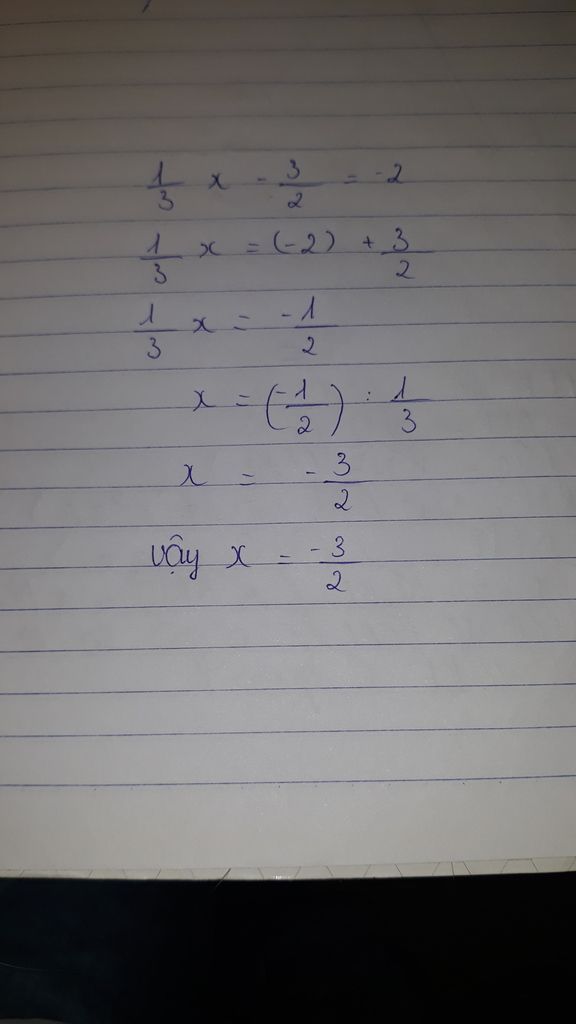 1/3 x - 3/2 = -2
1/3 x = (-2) + 3/2
1/3 x = -1/2
x = (-1/2) : 1/3
x = -3/2
vậy x = -3/2